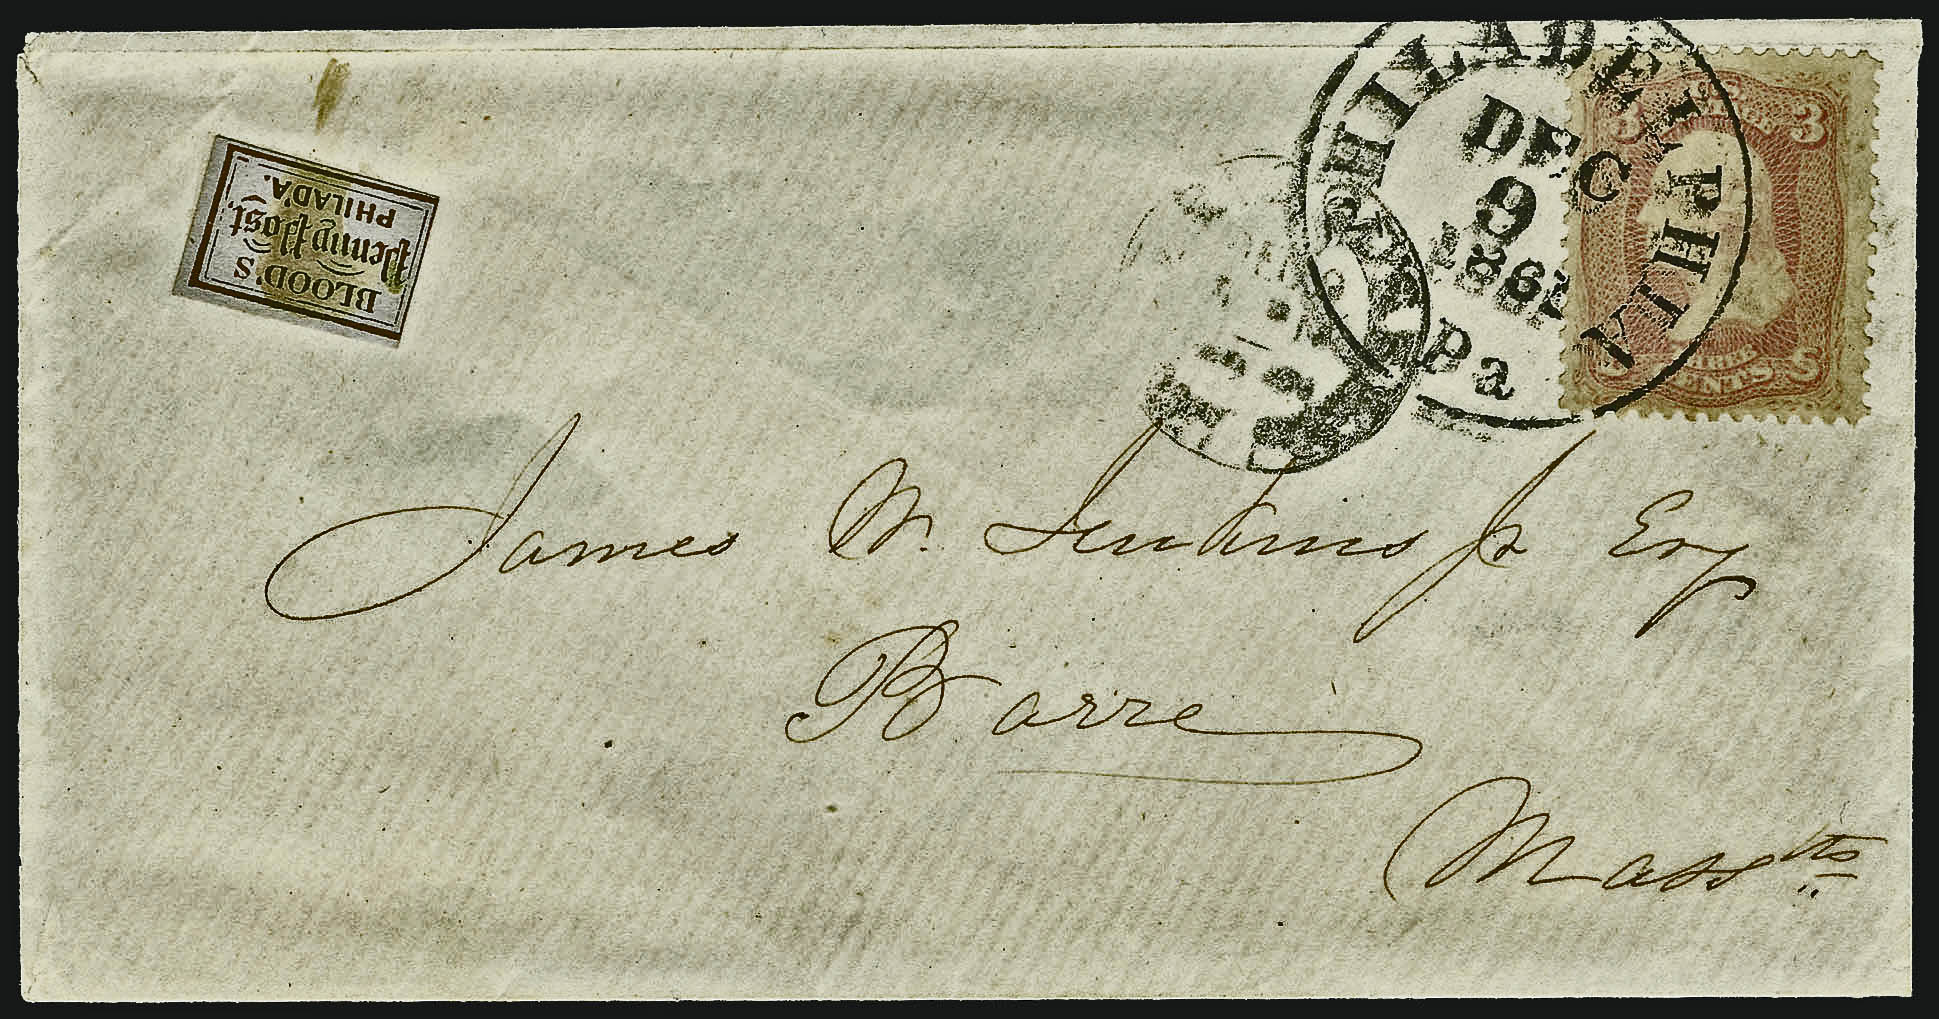 BLOOD'S
Penny Post.
PHILAD'A.
PHILADELPHIA
DEC
9
1861
Pa
3 3
CENTS
James W. Jenkins Jr Esq
Barre
Masstts